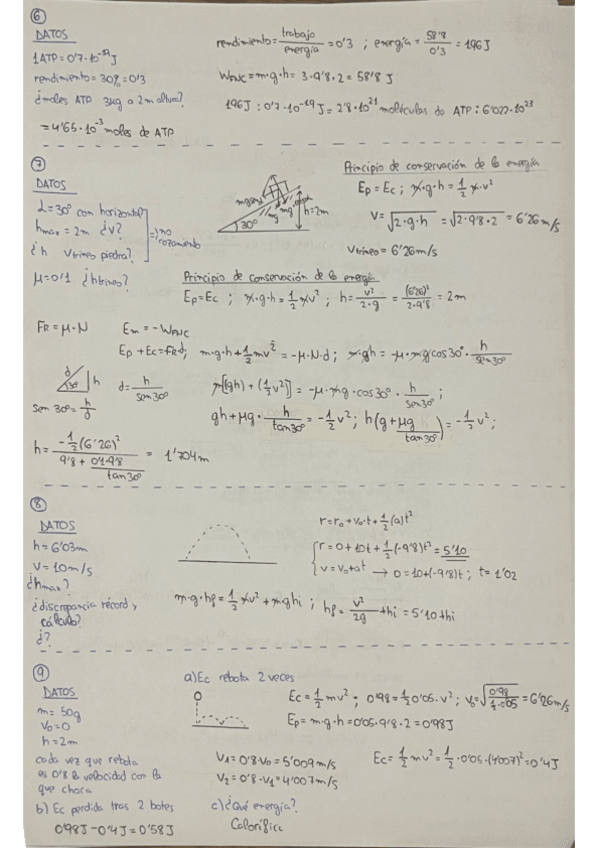 ⑥
DATOS
1ATP=0'7·10⁻¹⁹J
rendimiento=30%=0'3
¿moles ATP 3kg a 2m altura?
=4'65·10⁻³ moles de ATP
rendimiento=trabajo/energía=0'3 ; energía=58'8/0'3=196J
W_FNC=m·g·h=3·9'8·2=58'8 J
196J:0'7·10⁻¹⁹J=2'8·10²¹ moléculas de ATP:6'022·10²³
⑦
DATOS
α=30º con horizontal
hmax=2m ¿v?
¿h v trineo piedra?
=no rozamiento
μ=0'1 ¿h trineo?
30º
h=2m
Principio de conservación de la energía
Ep=Ec ; m·g·h=1/2 m·v²
v=√2·g·h=√2·9'8·2=6'26m/s
v trineo=6'26m/s
Principio de conservación de la energía
Ep=Ec ; m·g·h=1/2 mv² ; h=v²/2·g=(6'26)²/2·9'8=2m
FR=μ·N Em=-W_FNC
Ep+Ec=FR·d; m·g·h+1/2mv²=-μ·N·d; m·gh=-μ·mgcos30º·h/sen30º
d h
30º
d=h/sen30º
sen 30º=h/d
m[(gh)+(1/2v²)]=-μ·mg·cos30º·h/sen30º ;
gh+μg·h/tan30º=-1/2v²; h(g+μg/tan30º)=-1/2v²;
h=-1/2(6'26)²/9'8+0'1·9'8/tan30º = 1'704m
⑧
DATOS
h=6'03m
v=10m/s
¿hmax?
¿discrepancia récord y cálculo?
¿?
r=r₀+v₀·t+1/2(a)t²
r=0+10t+1/2(-9'8)t²=5'10
v=v₀+at → 0=10+(-9'8)t ; t=1'02
m·g·hf=1/2mv²+m·ghi ; hf=v²/2g+hi=5'10+hi
⑨
DATOS
m=50g
v₀=0
h=2m
cada vez que rebota
es 0'8 la velocidad con la
que choca
a) Ec rebota 2 veces
Ec=1/2mv² ; 0'98=1/2 0'05·v² ; v₀=√0'98/1/2·0'05=6'26m/s
Ep=m·g·h=0'05·9'8·2=0'98J
v₁=0'8·v₀=5'009m/s
v₂=0'8·v₁=4'007m/s
Ec=1/2mv²=1/2·0'05·(4'007)²=0'4J
b) Ec perdida tras 2 botes
0'98J-0'4J=0'58J
c) ¿Qué energía?
Calorífica